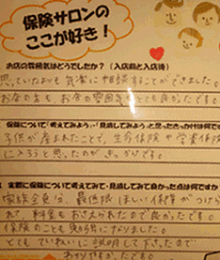 保険サロンの
ここが好き!
お店の雰囲気はどうでしたか?(入店前と入店後)
思っていたよりも気軽に相談することができました。
お店の方も、お店の雰囲気もとても良かったです。
保険について考えてみよう・見直してみようと思ったきっかけは何?
子供が産まれたことで、生命保険や学資保険
に入ろうと思ったのがきっかけです。
実際に保険について考えてみて・見直してみて良かった点は何ですか
家族全員分、最低限ほしい保障がつけら
れて、料金もおさえられたので良かったです。
保険のことも勉強になりました。
とてもていねいに説明して下さったので
わかりやすかったです。